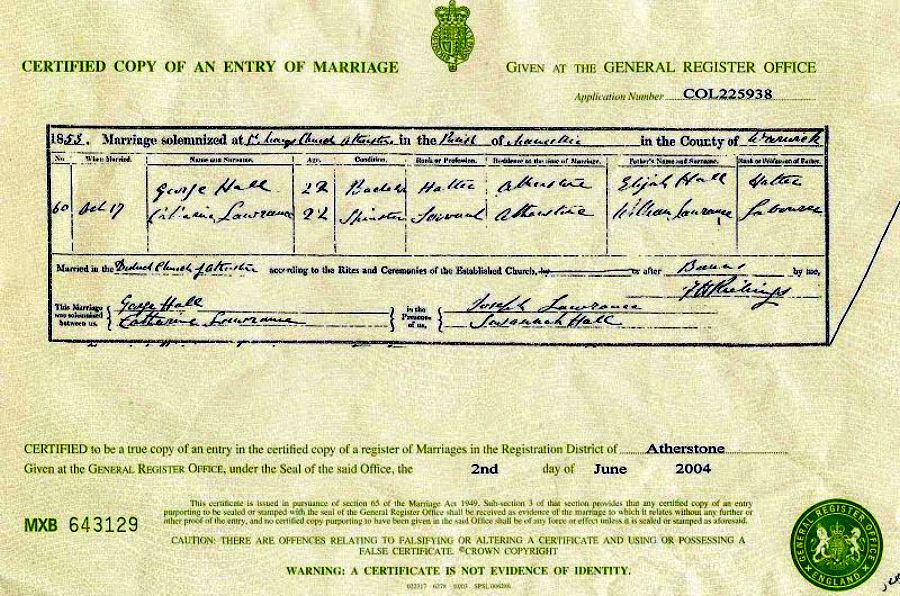 CERTIFIED COPY OF AN ENTRY OF MARRIAGE
GIVEN AT THE GENERAL REGISTER OFFICE
Application Number COL225938
1853. Marriage solemnized at St Marys Church Atherstone in the Parish of Mancetter in the County of Warwick
No. When Married. Name and Surname. Age. Condition. Rank or Profession. Residence at the time of Marriage. Father's Name and Surname. Rank or Profession of Father.
George Hall 22 Bachelor Hatter Atherstone Elijah Hall Hatter
60 Oct 17 Catharine Lawrance 22 Spinster Servant Atherstone William Laurance Labourer
Married in the District Church of Atherstone according to the Rites and Ceremonies of the Established Church, or after Banns by me,
This Marriage was solemnized between us, George Hall Catharine Lawrance in the Presence of us, Joseph Lawrance Susannah Hall
CERTIFIED to be a true copy of an entry in the certified copy of a register of Marriages in the Registration District of Atherstone
Given at the GENERAL REGISTER OFFICE, under the Seal of the said Office, the 2nd day of June 2004
MXB 643129
This certificate is issued in pursuance of section 65 of the Marriage Act 1949. Sub-section 3 of that section provides that any certified copy of an entry
purporting to be sealed or stamped with the seal of the General Register Office shall be received as evidence of the marriage to which it relates without any further or
other proof of the entry, and no certified copy purporting to have been given in the said Office shall be of any force or effect unless it is sealed or stamped as aforesaid.
CAUTION: THERE ARE OFFENCES RELATING TO FALSIFYING OR ALTERING A CERTIFICATE AND USING OR POSSESSING A
FALSE CERTIFICATE. ©CROWN COPYRIGHT
WARNING: A CERTIFICATE IS NOT EVIDENCE OF IDENTITY.
GENERAL REGISTER OFFICE
ENGLAND